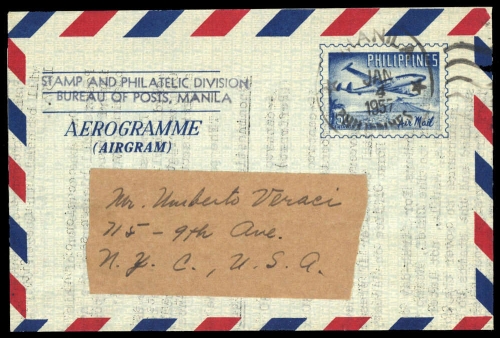 MANILA
PHILIPPINES
JAN
1957
PHILIPPINES
Air Mail
STAMP AND PHILATELIC DIVISION
BUREAU OF POSTS, MANILA
AEROGRAMME
(AIRGRAM)
Mr. Umberto Veraci
115 - 9th Ave.
N.Y.C., U.S.A.